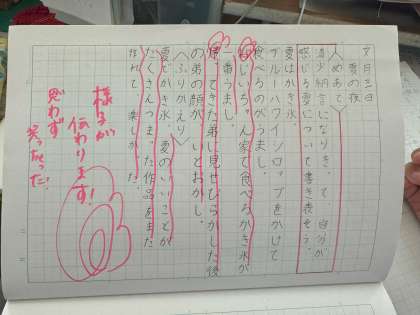 月三日
夏の夜
〈めあて〉
清少納言になりきって自分が
感じる夏について書き表そう。
夏はかき氷。
ブルーハワイシロップをかけて
食べるのがうまし。
じいちゃん家で食べるかき氷が
一番うまし。
てきた弟に見せびらかした後
の弟の顔が、いとおかし。
〈ふりかえり〉
夏でかき氷、夏のいいことが
たくさんつまった作品をまた
作れて、楽しかった。
様子が
伝わります!
思わず
笑っちゃった!